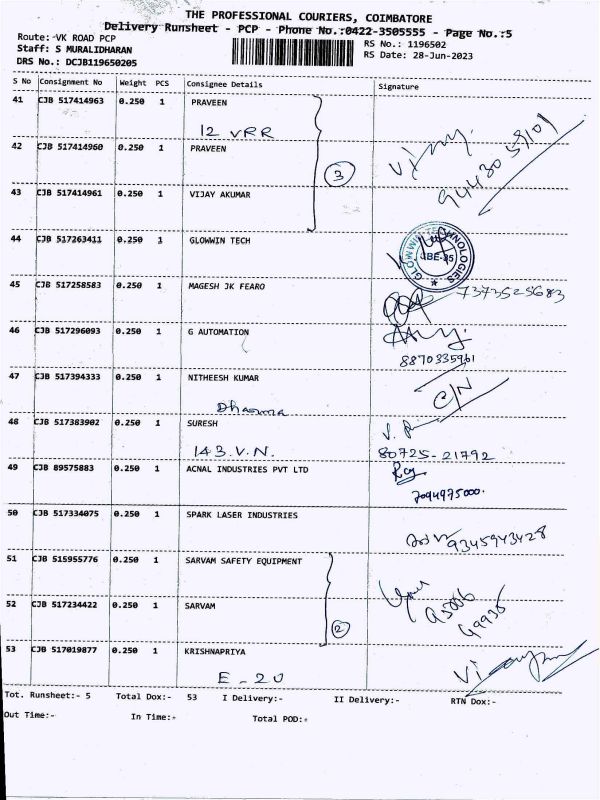 THE PROFESSIONAL COURIERS, COIMBATORE
Delivery Runsheet - PCP - Phone No.:0422-3505555 - Page No.:5
Route:-VK ROAD PCP
Staff: S MURALIDHARAN
DRS No.: DCJB119650205
RS No.: 1196502
RS Date: 28-Jun-2023
S No Consignment No Weight PCS Consignee Details Signature
41 CJB 517414963 0.250 1 PRAVEEN
12 VRR
42 CJB 517414960 0.250 1 PRAVEEN
3
Vijay.
94430 59101
43 CJB 517414961 0.250 1 VIJAY AKUMAR
44 CJB 517263411 0.250 1 GLOWWIN TECH
GLOWWIN TECHNOLOGIES
CBE-35
45 CJB 517258583 0.250 1 MAGESH JK FEARO
7373525683
46 CJB 517296093 0.250 1 G AUTOMATION
8870335961
47 CJB 517394333 0.250 1 NITHEESH KUMAR
C/N
Dharma
48 CJB 517383902 0.250 1 SURESH
143.V.N.
80725-21792
49 CJB 89575883 0.250 1 ACNAL INDUSTRIES PVT LTD
7094975000.
50 CJB 517334075 0.250 1 SPARK LASER INDUSTRIES
9345943428
51 CJB 515955776 0.250 1 SARVAM SAFETY EQUIPMENT
52 CJB 517234422 0.250 1 SARVAM
2
53 CJB 517019877 0.250 1 KRISHNAPRIYA
E-20
Tot. Runsheet:- 5 Total Dox:- 53 I Delivery:- II Delivery:- RTN Dox:-
Out Time:- In Time:- Total POD:-